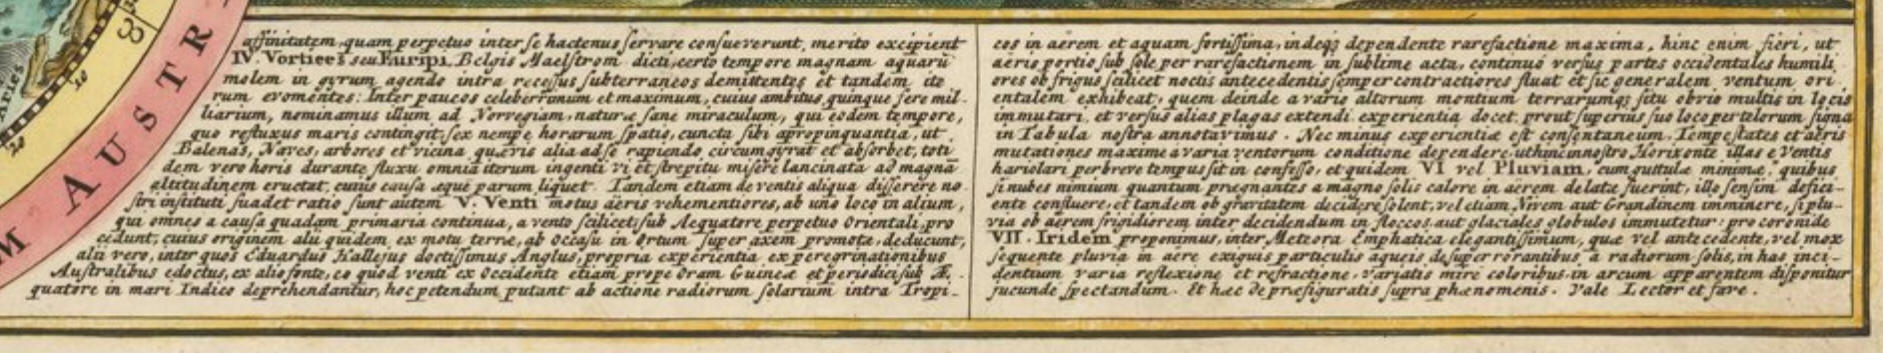 affinitatem, quam perpetuo inter se hactenus servare consueverunt, merito excipient
IV. Vortices seu Euripi, Belgis Maelstrom dicti, certo tempore magnam aquarū
molem in gyrum agendo intra recessus subterraneos demittentes et tandem ite
rum evomentes: Inter paucos celeberrimum et maximum, cuius ambitus quinque fere mil-
liarium, nominamus illum ad Norvegiam, naturæ sane miraculum, qui eodem tempore,
quo refluxus maris contingit, sex nempe horarum spatio, cuncta sibi apropinquantia, ut
Balenas, Naves, arbores et vicina quævis alia ad se rapiendo circumgyrat et absorbet, toti
dem vero horis durante fluxu omnia iterum ingenti vi et strepitu misere lancinata ad magnā
altitudinem eructat, cuius causa æque parum liquet. Tandem etiam de ventis aliqua disserere no
stri instituti suadet ratio sunt autem V. Venti motus aëris vehementiores, ab uno loco in alium,
qui omnes a causa quadam primaria continua, a vento scilicet sub Aequatore perpetuo Orientali, pro
cedunt, cuius originem alii quidem ex motu terræ, ab Occasu in Ortum super axem promotæ, deducunt,
alii vero, inter quos Eduardus Hallejus doctissimus Anglus, propria experientia ex peregrinationibus
Australibus edoctus, ex alio fonte, eo quod venti ex Occidente etiam prope Oram Guineæ et periodici sub Æ-
quatore in mari Indico deprehendantur, hoc petendum putant ab actione radiorum solarium intra Tropi-
cos in aërem et aquam fortissima, indeqz dependente rarefactione maxima, hinc enim fieri, ut
aëris portio sub sole per rarefactionem in sublime acta, continuo versus partes occidentales humili
ores ob frigus scilicet noctis antecedentis semper contractiores fluat et sic generalem ventum ori
entalem exhibeat, quem deinde a vario altorum montium terrarumqz situ obvio multis in locis
immutari, et versus alias plagas extendi experientia docet, prout superius suo loco per telorum signa
in Tabula nostra annotavimus. Nec minus experientiæ est consentaneum, Tempestates et aëris
mutationes maxime a varia ventorum conditione dependere, ut hinc in nostro Horizonte illas e Ventis
hariolari per breve tempus sit in confesso, et quidem VI vel Pluviam, cum guttulæ minimæ, quibus
si nubes nimium quantum prægnantes a magno solis calore in aërem delatæ fuerint, illo sensim defici-
ente confluere, et tandem ob gravitatem decidere solent, vel etiam Nivem aut Grandinem imminere, si plu-
via ob aërem frigidiorem inter decidendum in floccos aut glaciales globulos immutetur: pro coronide
VII. Iridem proponimus, inter Meteora Emphatica elegantissimum, quæ vel antecedente, vel mox
sequente pluvia in aëre exiguis particulis aqueis desuper rorantibus, a radiorum solis, in has inci-
dentium varia reflexione et refractione, variatis mire coloribus in arcum apparentem disponitur
jucunde spectandum. Et hæc de præfiguratis supra phænomenis. Vale Lector et fave.
M AUSTR
Aries
10
20